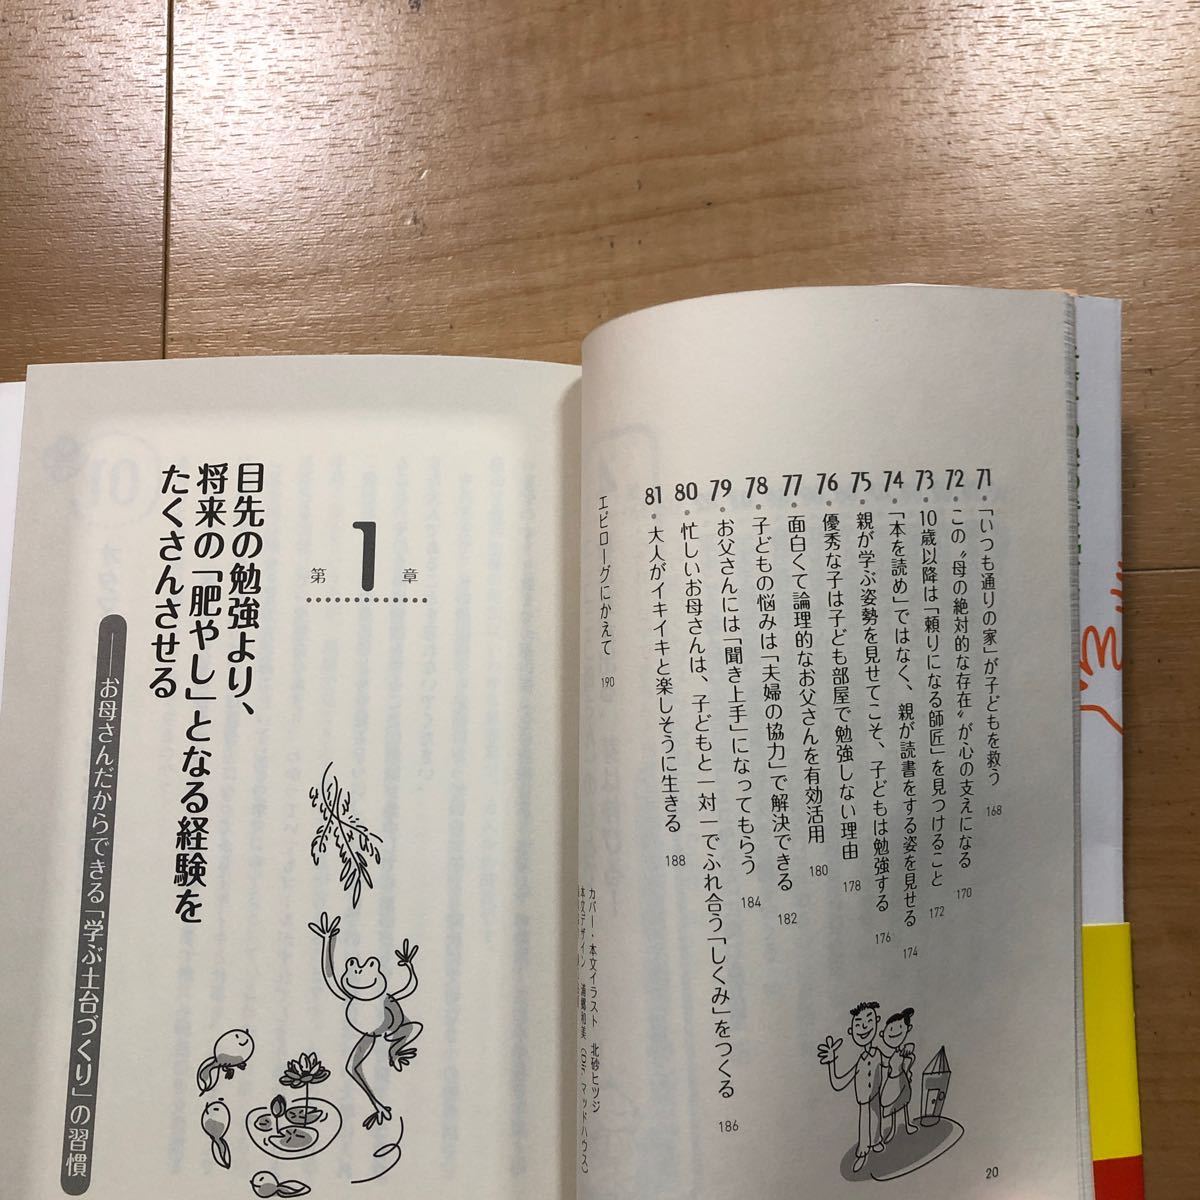 71 ・ 「いつも通りの家」が子どもを救う 168
72 ・ この〝母の絶対的な存在〟が心の支えになる 170
73 ・ 10歳以降は「頼りになる師匠」を見つけること 172
74 ・ 「本を読め」ではなく、親が読書をする姿を見せる 174
75 ・ 親が学ぶ姿勢を見せてこそ、子どもは勉強する 176
76 ・ 優秀な子は子ども部屋で勉強しない理由 178
77 ・ 面白くて論理的なお父さんを有効活用 180
78 ・ 子どもの悩みは「夫婦の協力」で解決できる 182
79 ・ お父さんには「聞き上手」になってもらう 184
80 ・ 忙しいお母さんは、子どもと一対一でふれ合う「しくみ」をつくる 186
81 ・ 大人がイキイキと楽しそうに生きる 188
エピローグにかえて 190
カバー・本文イラスト 北砂ヒツジ
本文デザイン 浦郷和美
20
第1章
目先の勉強より、
将来の「肥やし」となる経験を
たくさんさせる
――お母さんだからできる「学ぶ土台づくり」の習慣